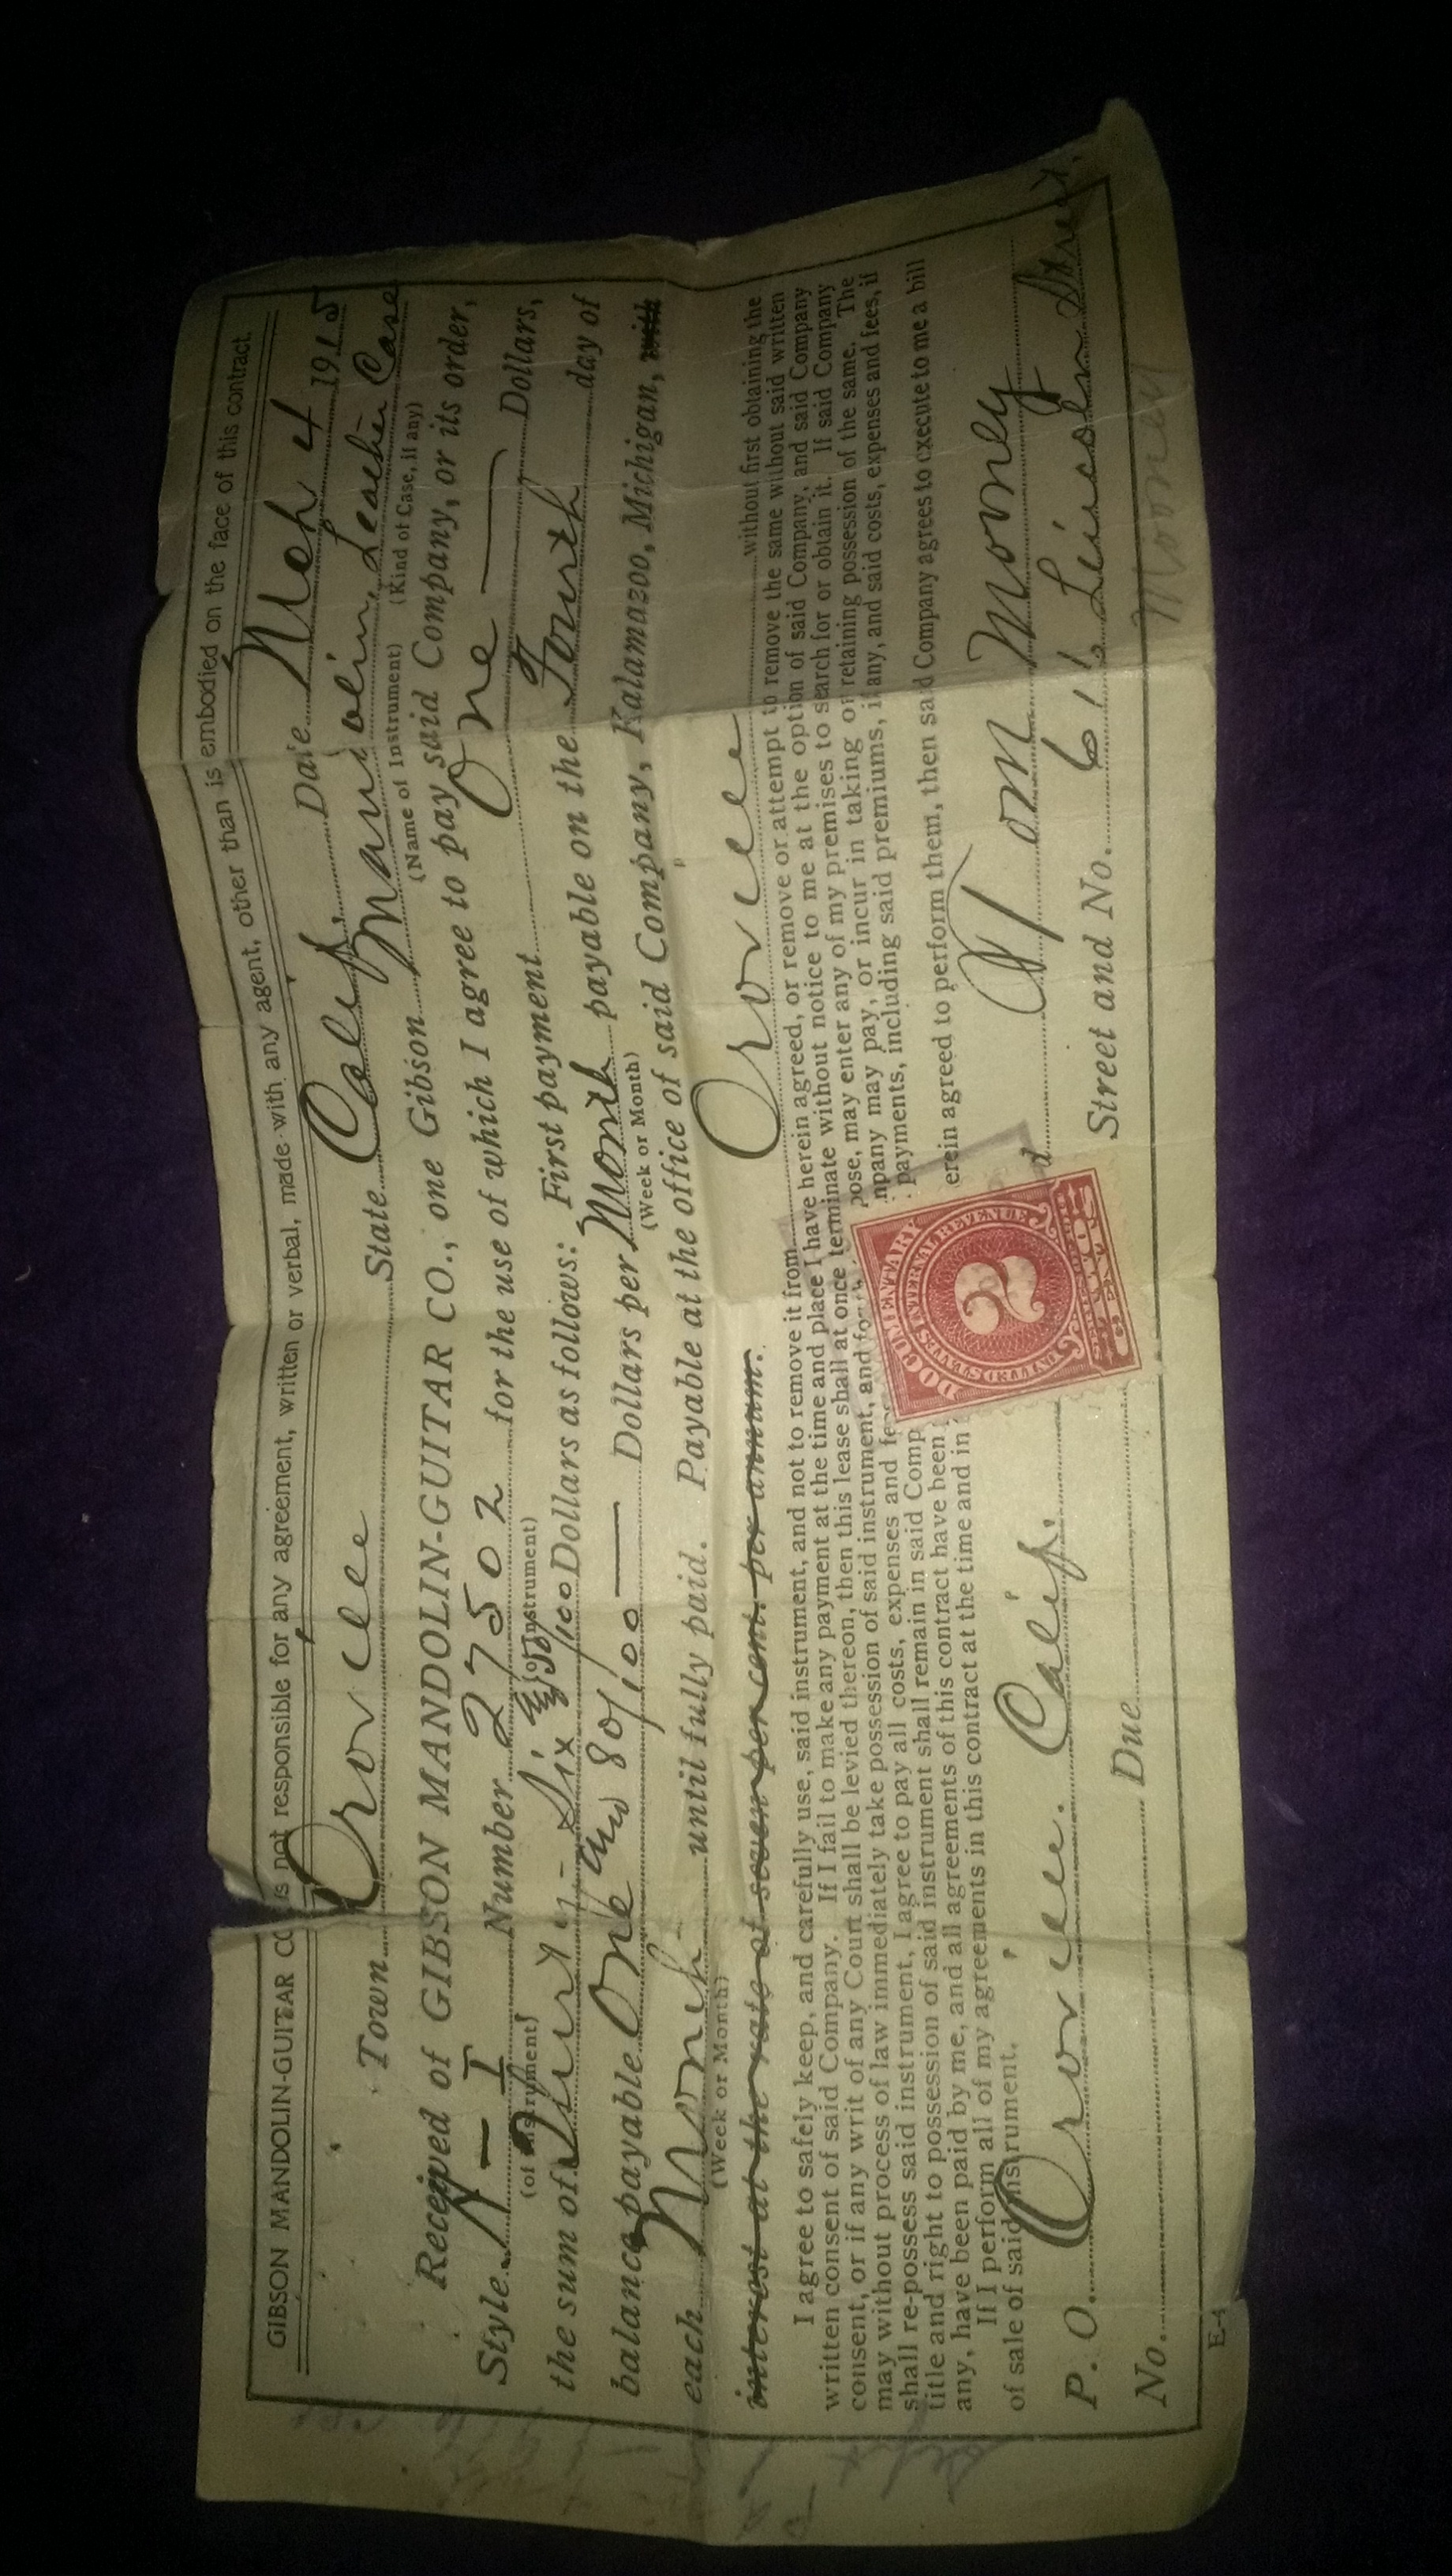 GIBSON MANDOLIN-GUITAR CO is not responsible for any agreement, written or verbal, made with any agent, other than is embodied on the face of this contract.
Town Orovee State Calif. Date Mch 4 1915
Received of GIBSON MANDOLIN-GUITAR CO., one Gibson Mandolin, Leather Case
(Name of Instrument) (Kind of Case, if any)
Style Number 27502 for the use of which I agree to pay said Company, or its order,
(of Instrument) (of Instrument)
the sum of Sixty-Six /100 Dollars as follows: First payment One Dollars,
balance payable One and 80/100 Dollars per Month payable on the Fourth day of
(Week or Month)
each Month until fully paid. Payable at the office of said Company, Kalamazoo, Michigan, with
(Week or Month)
interest at the rate of seven per cent. per annum.
I agree to safely keep, and carefully use, said instrument, and not to remove it from Orovee without first obtaining the
written consent of said Company. If I fail to make any payment at the time and place I have herein agreed, or remove or attempt to remove the same without said written
consent, or if any writ of any Court shall be levied thereon, then this lease shall at once terminate without notice to me at the option of said Company, and said Company
may without process of law immediately take possession of said instrument, and for pose, may enter any of my premises to search for or obtain it. If said Company
shall re-possess said instrument, I agree to pay all costs, expenses and fe npany may pay, or incur in taking or retaining possession of the same. The
title and right to possession of said instrument shall remain in said Comp payments, including said premiums, if any, and said costs, expenses and fees, if
any, have been paid by me, and all agreements of this contract have been
If I perform all of my agreements in this contract at the time and in erein agreed to perform them, then said Company agrees to execute to me a bill
of sale of said instrument.
d. Tom Money
P. O. Orovee. Calif. Street and No. 611 Lincoln Street.
No. Due
Mooney
E-4
DOCUMENTARY
UNITED STATES INTERNAL REVENUE
2
CENTS